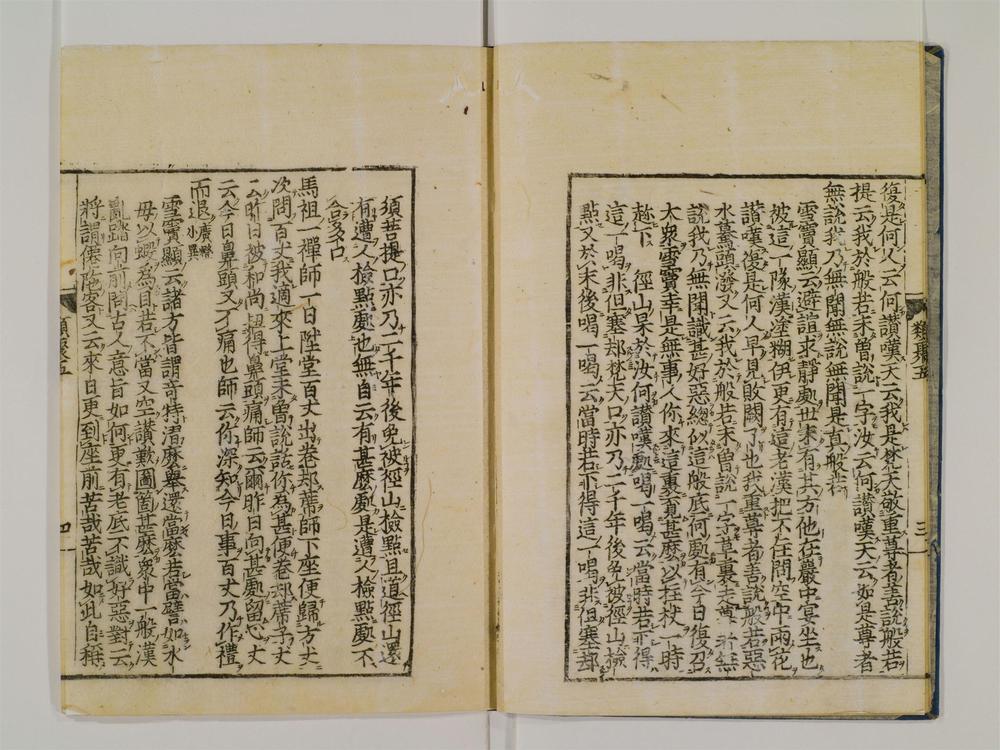 復是何人云何讚嘆天云我是梵天敬重尊者善說般若
提云我於般若未曾說一字汝云何讚嘆天云如是尊者
無說我乃無聞無說無聞是真般若
雪竇顯云避諠求靜處世未有其方他在巖中宴坐也
被這一隊漢塗糊伊更有這老漢把不住問空中雨花
讚嘆復是何人早見敗闕了也我重尊者善說般若惡
水驀頭潑又云我於般若未曾說一字草裏走尊者無
說我乃無聞識甚好惡總似這般底何處有今日復召
大衆雪竇幸是無事人你來這裏覓甚麼以拄杖一時
趁下 徑山杲於汝何讚嘆處喝一喝云當時若得
這一喝非但塞却梵天口亦乃一千年後免被徑山檢
點又於末後喝一喝云當時若亦得這一喝非但塞却
類聚五
三
須菩提口亦乃一千年後免被徑山檢點且道徑山還
有遭人檢點處也無自云有甚麼處是遭人檢點處不
合多口
馬祖一禪師一日陞堂百丈出卷却蓆師下座便歸方丈
次問百丈我適來上堂未曾說話你為甚便卷却蓆子丈
云昨日被和尚扭得鼻頭痛師云爾昨日向甚處留心丈
云今日鼻頭又不痛也師云你深知今日事百丈乃作禮
而退廣燈小異
雪竇顯云諸方皆謂奇特渭麼舉還當麼若當譬如水
母以蝦為目若不當又空讚歎圖箇甚麼衆中一般漢
亂踏向前問古人意旨如何更有老底不識好惡對云
將謂侯陁客又云來日更到座前苦哉苦哉如此自稱
類聚五
四